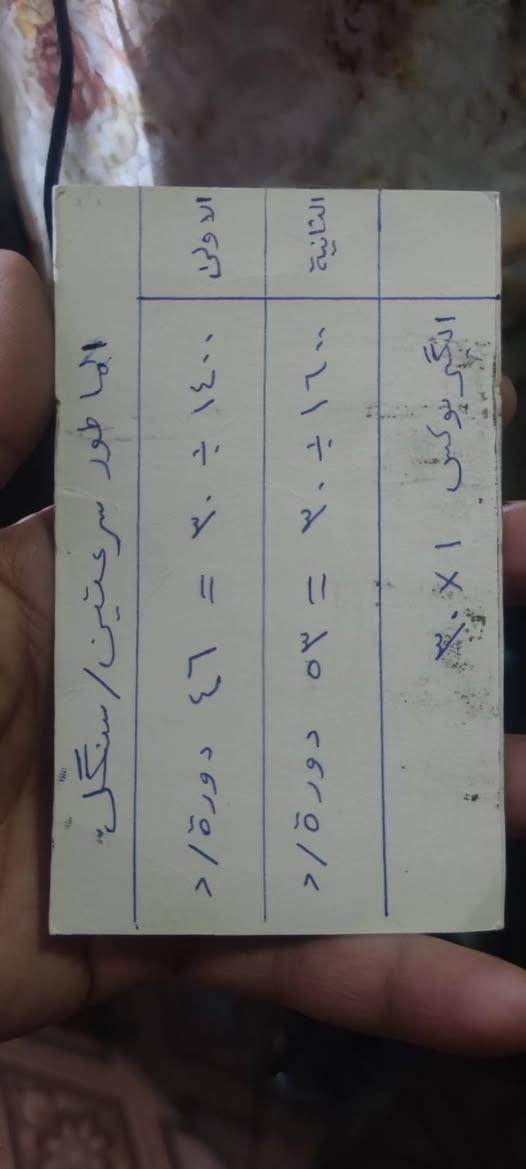 الماطور سرعتين/سنگل
الاولى ١٤٠٠ ÷ ٣٠ = ٤٦ دورة/د
الثانية ١٦٠٠ ÷ ٣٠ = ٥٣ دورة/د
الگيربوكس ١ × ٣٠